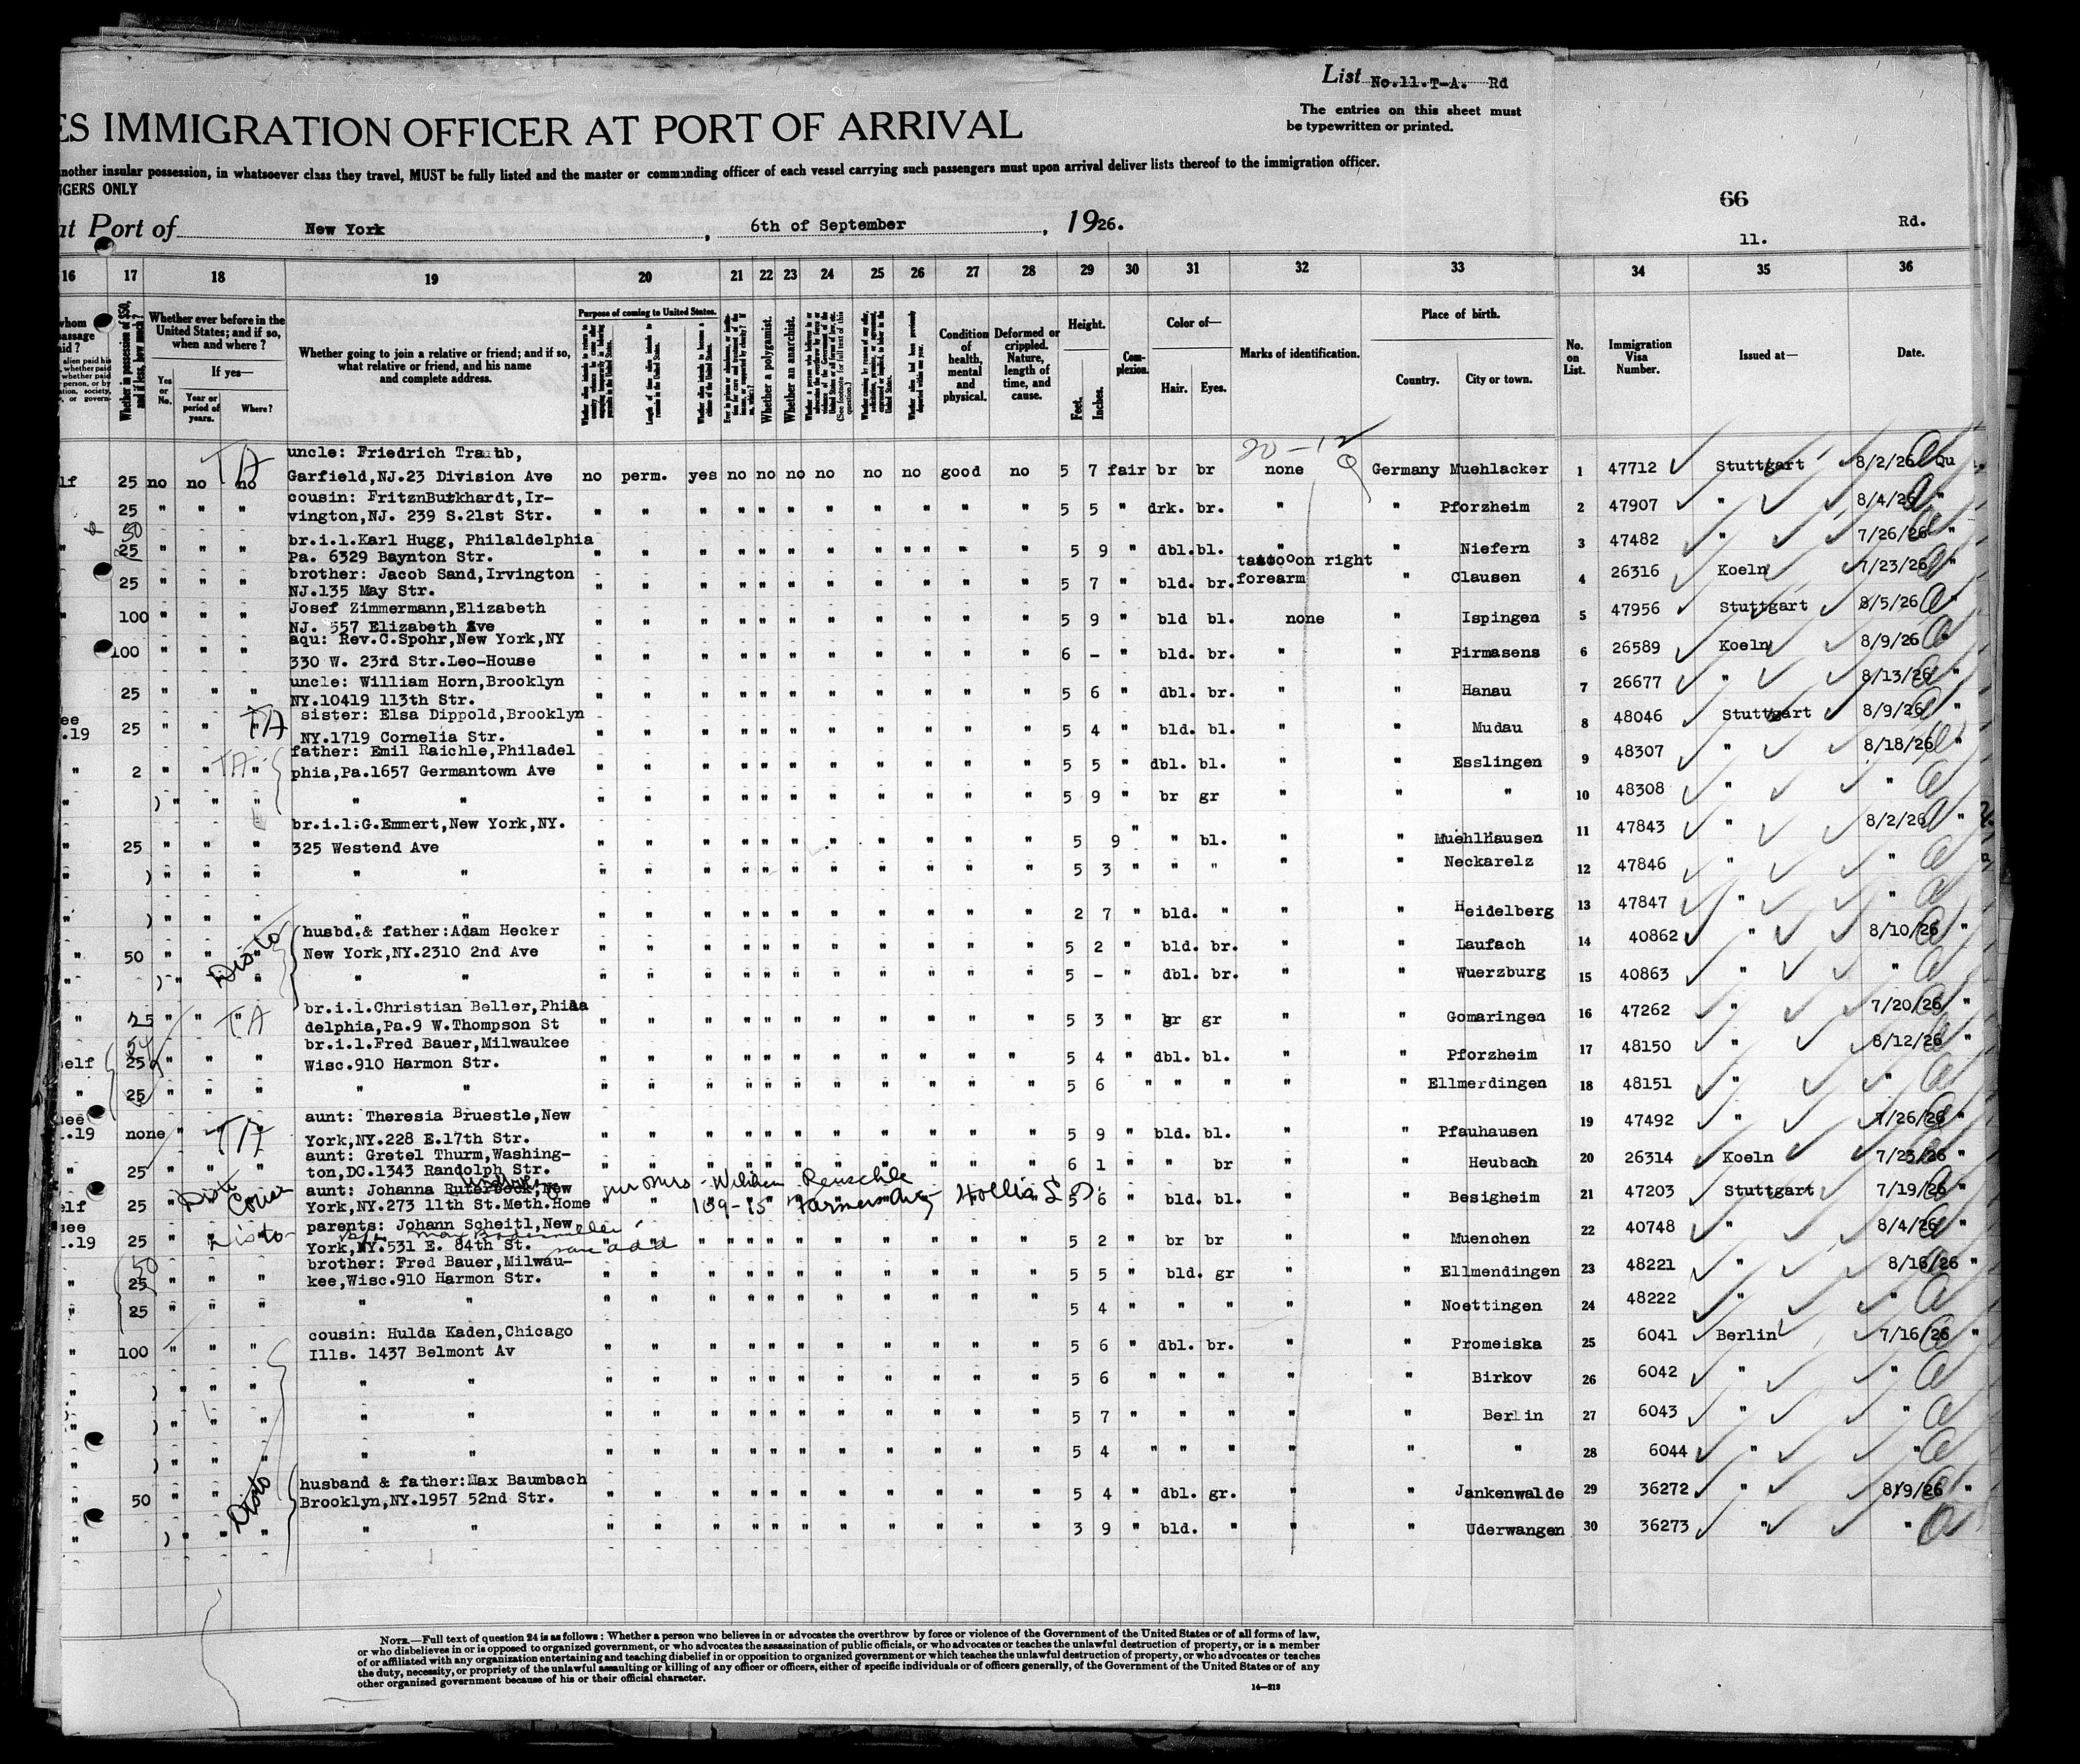 List No.11.T-A. Rd
The entries on this sheet must
be typewritten or printed.
ES IMMIGRATION OFFICER AT PORT OF ARRIVAL
another insular possession, in whatsoever class they travel, MUST be fully listed and the master or commanding officer of each vessel carrying such passengers must upon arrival deliver lists thereof to the immigration officer.
NGERS ONLY
66
at Port of New York, 6th of September, 1926.
11. Rd.
16 17 18 19 20 21 22 23 24 25 26 27 28 29 30 31 32 33 34 35 36
Whether in possession of $50, and if less, how much?
Whether ever before in the United States; and if so, when and where?
Yes or No.
If yes—
Year or period of years.
Where?
Whether going to join a relative or friend; and if so, what relative or friend, and his name and complete address.
Purpose of coming to United States.
Whether a polygamist.
Whether an anarchist.
Condition of health, mental and physical.
Deformed or crippled. Nature, length of time, and cause.
Height.
Feet. Inches.
Complexion.
Color of—
Hair. Eyes.
Marks of identification.
Place of birth.
Country. City or town.
No. on List.
Immigration Visa Number.
Issued at—
Date.
20-12
uncle: Friedrich Traub,
lf 25 no no no TA Garfield,NJ.23 Division Ave no perm. yes no no no no no no good no 5 7 fair br br none Germany Muehlacker 1 47712 Stuttgart 8/2/26 Qu
cousin: FritznBurkhardt,Ir-
25 " " " vington,NJ. 239 S.21st Str. " " " " " " " " " " " 5 5 " drk. br. " " Pforzheim 2 47907 " 8/4/26 "
50
br.i.l.Karl Hugg, Philaldelphia
" 25 " " " Pa. 6329 Baynton Str. " " " " " " " " " " " 5 9 " dbl. bl. " " Niefern 3 47482 " 7/26/26 "
brother: Jacob Sand,Irvington tattoo on right
25 " " " NJ.135 May Str. " " " " " " " " " " " 5 7 " bld. br. forearm " Clausen 4 26316 Koeln 7/23/26 "
Josef Zimmermann,Elizabeth
" 100 " " " NJ. 557 Elizabeth Ave " " " " " " " " " " " 5 9 " bld bl. none " Ispingen 5 47956 Stuttgart 8/5/26 "
aqu: Rev.C.Spohr,New York,NY
100 " " " 330 W. 23rd Str.Leo-House " " " " " " " " " " " 6 - " bld. br. " " Pirmasens 6 26589 Koeln 8/9/26
uncle: William Horn,Brooklyn
25 " " " NY.10419 113th Str. " " " " " " " " " " " 5 6 " dbl. br. " " Hanau 7 26677 " 8/13/26
ee sister: Elsa Dippold,Brooklyn
.19 25 " " TA NY.1719 Cornelia Str. " " " " " " " " " " " 5 4 " bld. bl. " " Mudau 8 48046 Stuttgart 8/9/26 "
father: Emil Raichle,Philadel
" 2 " " TA " phia,Pa.1657 Germantown Ave " " " " " " " " " " " 5 5 " dbl. bl. " " Esslingen 9 48307 " 8/18/26 "
" ) " " " " " " " " " " " " " " " " " " 5 9 " br gr " " " 10 48308 " "
br.i.l.G.Emmert,New York,NY.
" 25 " " " 325 Westend Ave " " " " " " " " " " " 5 9 " " bl. " " Muehlhausen 11 47843 " 8/2/26 "
" ) " " " " " " " " " " " " " " " " " " 5 3 " " " " " Neckarelz 12 47846 " "
" ) " " " " " " " " " " " " " " " " " " 2 7 " bld. " " " Heidelberg 13 47847 " "
husbd.& father:Adam Hecker
" 50 " " " New York,NY.2310 2nd Ave " " " " " " " " " " " 5 2 " bld. br. " " Laufach 14 40862 " 8/10/26 "
" ) " " " " " " " " " " " " " " " " " 5 - " dbl. br. " " Wuerzburg 15 40863 " "
br.i.l.Christian Beller,Phila
" 25 " " TA delphia,Pa.9 W.Thompson St " " " " " " " " " " " 5 3 " br gr " " Gomaringen 16 47262 " 7/20/26 "
br.i.l.Fred Bauer,Milwaukee
self 25 " " " Wisc.910 Harmon Str. " " " " " " " " " " " 5 4 " dbl. bl. " " Pforzheim 17 48150 " 8/12/26 "
" 25 " " " " " " " " " " " " " " " " " 5 6 " " " " " Ellmerdingen 18 48151 " "
see aunt: Theresia Bruestle,New
.19 none " TA York,NY.228 E.17th Str. " " " " " " " " " " " 5 9 " bld. bl. " " Pfauhausen 19 47492 " 7/26/26 "
aunt: Gretel Thurm,Washing-
" 25 " " " ton,DC.1343 Randolph Str. " " " " " " " " " " " 6 1 " " br " " Heubach 20 26314 Koeln 7/23/26 "
aunt: Johanna Ruterbock,New Mrs. William Reuschle
elf 25 " " " York,NY.273 11th St.Meth.Home 109-15 Farmers Ave Hollis L I 5 6 " bld. bl. " " Besigheim 21 47203 Stuttgart 7/19/26 "
see parents: Johann Scheitl,New
.19 25 " " York,NY.531 E. 84th St. same add " " " " " " " " " " " 5 2 " br br " " Muenchen 22 40748 " 8/4/26 "
50 brother: Fred Bauer,Milwau-
" 25 " " " kee,Wisc.910 Harmon Str. " " " " " " " " " " " 5 5 " bld. gr " " Ellmendingen 23 48221 " 8/16/26 "
" 25 " " " " " " " " " " " " " " " " " 5 4 " " " " " Noettingen 24 48222 " "
cousin: Hulda Kaden,Chicago
" 100 " " " Ills. 1437 Belmont Av " " " " " " " " " " " 5 6 " dbl. br. " " Promeiska 25 6041 Berlin 7/16/26 "
" ) " " " " " " " " " " " " " " " " " 5 6 " " " " " Birkov 26 6042 " "
" ) " " " " " " " " " " " " " " " " " 5 7 " " " " " Berlin 27 6043 " "
" ) " " " " " " " " " " " " " " " " " 5 4 " " " " " " 28 6044 " "
husband & father:Max Baumbach
" 50 " " " Brooklyn,NY.1957 52nd Str. " " " " " " " " " " " 5 4 " dbl. gr. " " Jankenwalde 29 36272 " 8/9/26 "
" ) " " " " " " " " " " " " " " " " " 3 9 " bld. " " " Uderwangen 30 36273 " "
NOTE.—Full text of question 24 is as follows: Whether a person who believes in or advocates the overthrow by force or violence of the Government of the United States or of all forms of law,
or who disbelieves in or is opposed to organized government, or who advocates the assassination of public officials, or who advocates or teaches the unlawful destruction of property, or is a member
of or affiliated with any organization entertaining and teaching disbelief in or opposition to organized government or which teaches the unlawful destruction of property, or who advocates or teaches
the duty, necessity, or propriety of the unlawful assaulting or killing of any officer or officers, either of specific individuals or of officers generally, of the Government of the United States or of any
other organized government because of his or their official character.
14—213